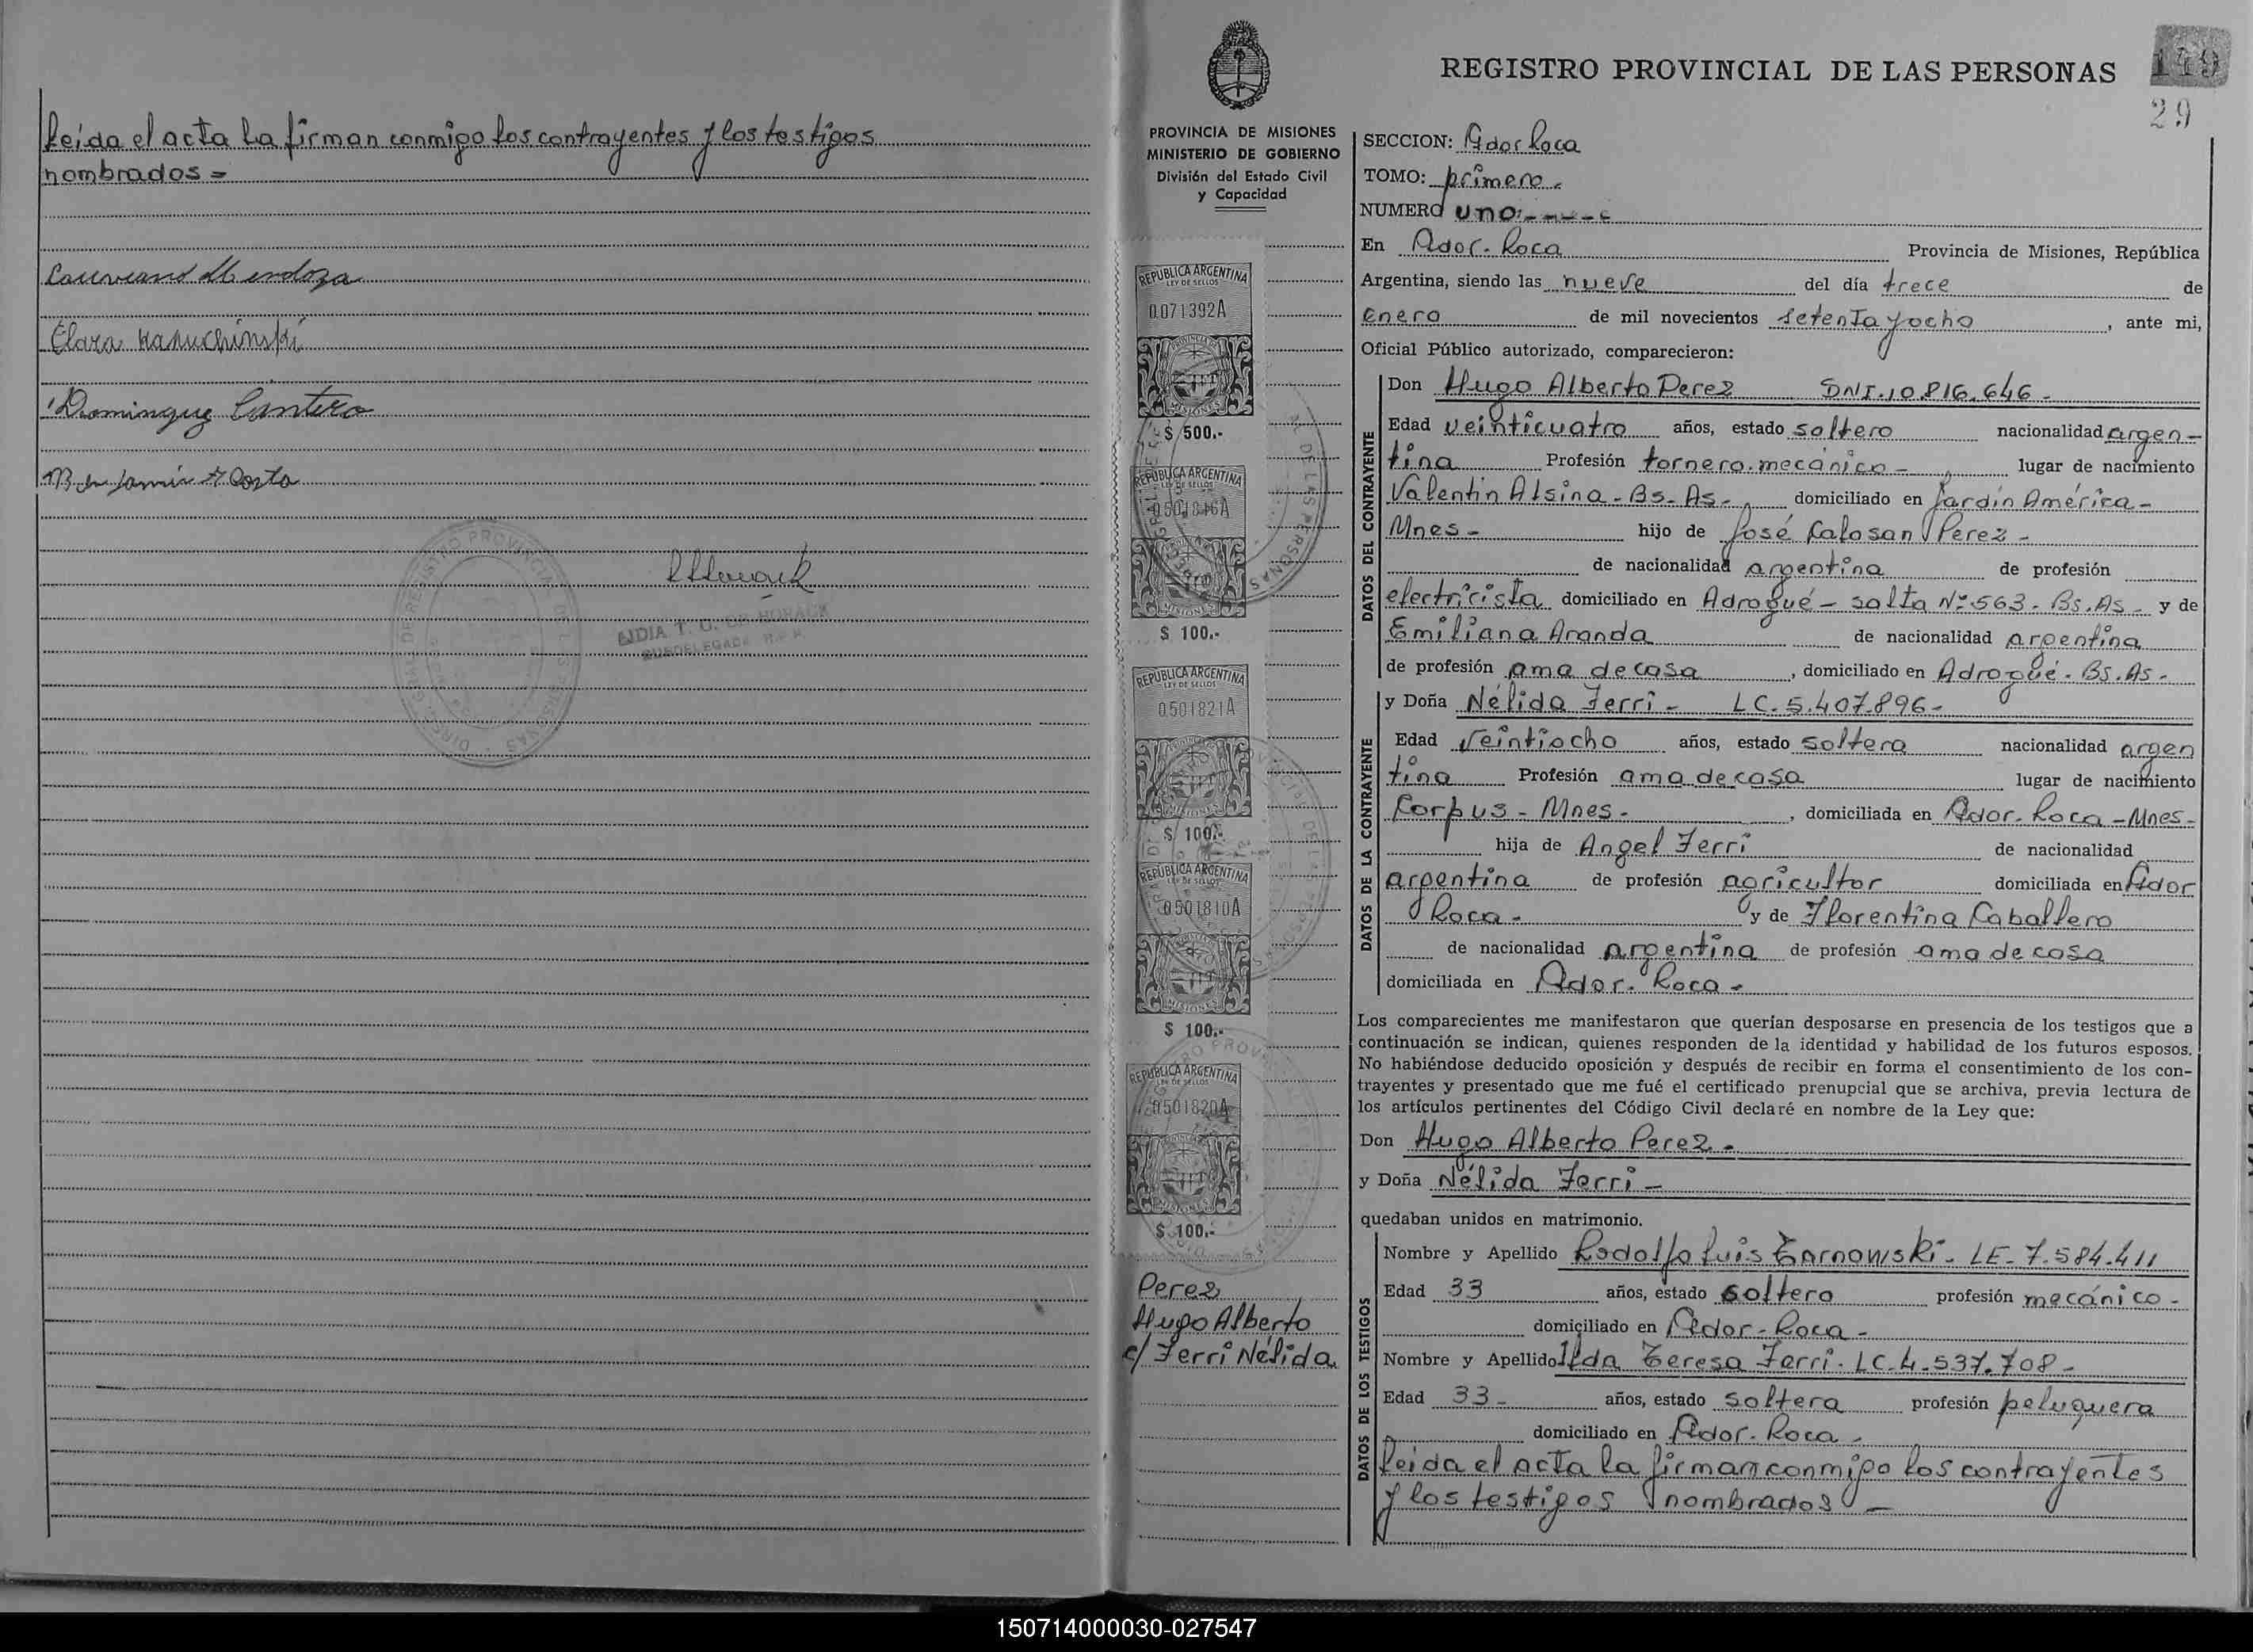 Leída el acta la firman conmigo los contrayentes y los testigos
nombrados =
Laureano Mendoza
Clara Hanuchinski
Dominguez Cantero
Benjamín A Costa
LIDIA T. G. DE HORACK
SUBDELEGADA R. P. P.
PROVINCIA DE MISIONES
MINISTERIO DE GOBIERNO
División del Estado Civil
y Capacidad
REPUBLICA ARGENTINA
LEY DE SELLOS
0.071392A
MISIONES
$ 500.-
REPUBLICA ARGENTINA
LEY DE SELLOS
0501816A
MISIONES
$ 100.-
REPUBLICA ARGENTINA
LEY DE SELLOS
0501821A
MISIONES
$ 100.-
REPUBLICA ARGENTINA
LEY DE SELLOS
0501810A
MISIONES
$ 100.-
REPUBLICA ARGENTINA
LEY DE SELLOS
0501820A
MISIONES
$ 100.-
Perez
Hugo Alberto
c/ Ferri Nélida
REGISTRO PROVINCIAL DE LAS PERSONAS
149
29
SECCION: Gdor Roca
TOMO: primero -
NUMERO uno - - - - -
En Gdor. Roca Provincia de Misiones, República
Argentina, siendo las nueve del día trece de
Enero de mil novecientos setenta y ocho, ante mi,
Oficial Público autorizado, comparecieron:
DATOS DEL CONTRAYENTE
Don Hugo Alberto Perez DNI. 10.816.646 -
Edad veinticuatro años, estado soltero nacionalidad argen-
tina Profesión tornero mecánico - lugar de nacimiento
Valentín Alsina - Bs. As - domiciliado en Jardín América -
Mnes - hijo de José Calosan Perez -
de nacionalidad argentina de profesión
electricista domiciliado en Adrogué - salta Nº 563 - Bs. As - y de
Emiliana Aranda de nacionalidad argentina
de profesión ama de casa, domiciliado en Adrogué - Bs. As -
DATOS DE LA CONTRAYENTE
y Doña Nélida Ferri - LC. 5.407.896 -
Edad veintiocho años, estado soltera nacionalidad argen
tina Profesión ama de casa lugar de nacimiento
Corpus - Mnes -, domiciliada en Gdor. Roca - Mnes -
hija de Angel Ferri de nacionalidad
argentina de profesión agricultor domiciliada en Gdor
Roca - y de Florentina Caballero
de nacionalidad argentina de profesión ama de casa
domiciliada en Gdor. Roca -
Los comparecientes me manifestaron que querían desposarse en presencia de los testigos que a
continuación se indican, quienes responden de la identidad y habilidad de los futuros esposos.
No habiéndose deducido oposición y después de recibir en forma el consentimiento de los con-
trayentes y presentado que me fué el certificado prenupcial que se archiva, previa lectura de
los artículos pertinentes del Código Civil declaré en nombre de la Ley que:
Don Hugo Alberto Perez -
y Doña Nélida Ferri -
quedaban unidos en matrimonio.
DATOS DE LOS TESTIGOS
Nombre y Apellido Rodolfo Luis Tarnowski - LE - 7.584.411
Edad 33 años, estado soltero profesión mecánico -
domiciliado en Gdor - Roca -
Nombre y Apellido Ilda Teresa Ferri - LC. 4.537.708 -
Edad 33 - años, estado soltera profesión peluquera
domiciliado en Gdor. Roca -
Leída el acta la firman conmigo los contrayentes
y los testigos nombrados -
150714000030-027547